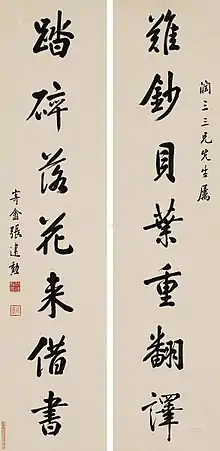 潤三三兄先生屬
難鈔貝葉重翻譯
踏碎落花来借書
張建勳